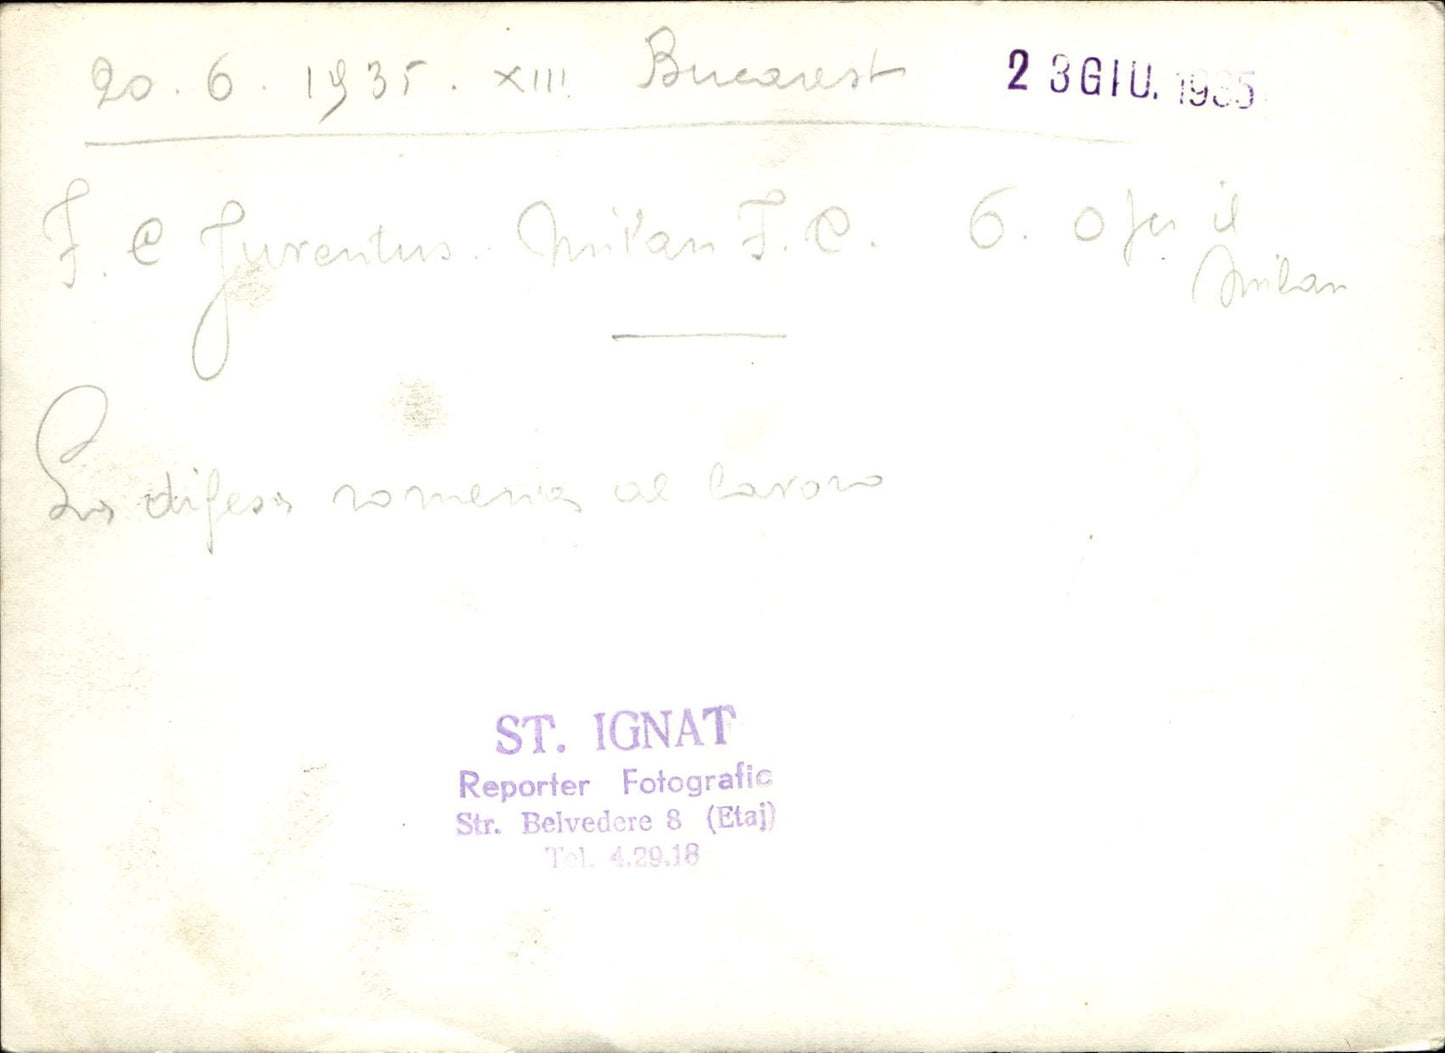 20. 6. 1935. XIII Bucarest 23 GIU. 1935
F. C Juventus. Milan F. C. 6. 0 per il
Milan
La difesa romena al lavoro
ST. IGNAT
Reporter Fotografic
Str. Belvedere 8 (Etaj)
Tel. 4.29.18